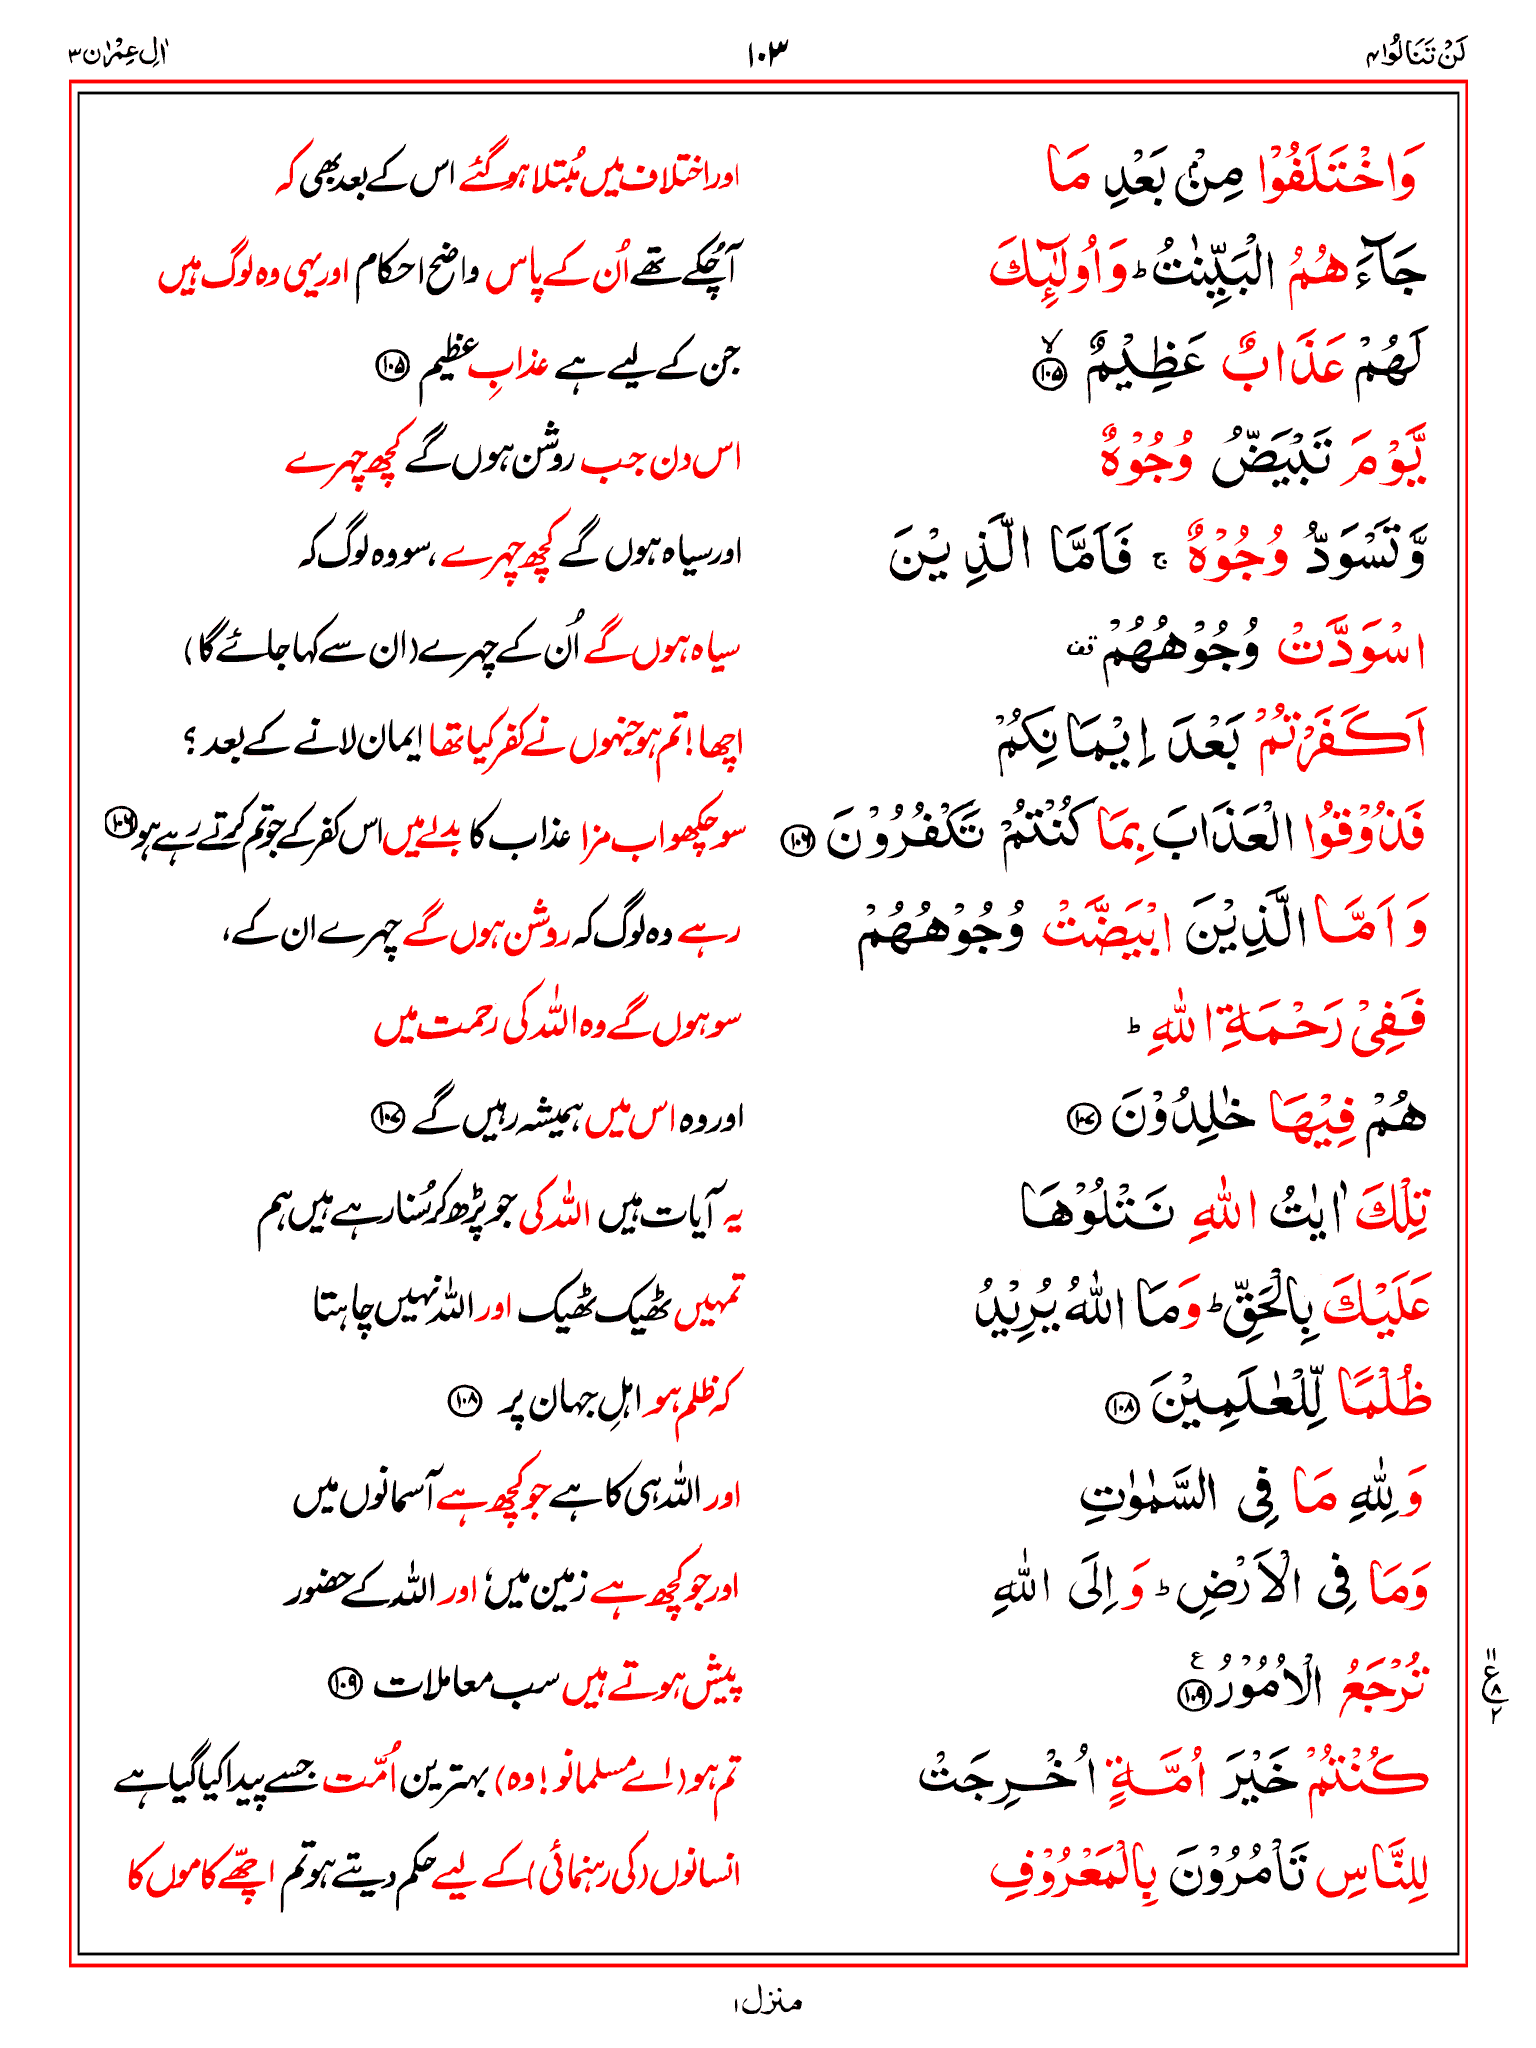 لَنْ تَنَالُوا ۴ ۱۰۳ اٰلِ عِمْرٰن ۳
وَاخْتَلَفُوْا مِنْۢ بَعْدِ مَا اور اختلاف میں مُبتلا ہو گئے اس کے بعد بھی کہ
جَآءَهُمُ الْبَيِّنٰتُ ؕ وَاُولٰٓئِكَ آچُکے تھے اُن کے پاس واضح احکام اور یہی وہ لوگ ہیں
لَهُمْ عَذَابٌ عَظِيْمٌ ۙ ﴿۱۰۵﴾ جن کے لیے ہے عذابِ عظیم ﴿۱۰۵﴾
يَّوْمَ تَبْيَضُّ وُجُوْهٌ اس دن جب روشن ہوں گے کچھ چہرے
وَّتَسْوَدُّ وُجُوْهٌ ۚ فَاَمَّا الَّذِيْنَ اور سیاہ ہوں گے کچھ چہرے، سو وہ لوگ کہ
اسْوَدَّتْ وُجُوْهُهُمْ قف سیاہ ہوں گے اُن کے چہرے (ان سے کہا جائے گا)
اَكَفَرْتُمْ بَعْدَ اِيْمَانِكُمْ اچھا! تم ہو جنہوں نے کفر کیا تھا ایمان لانے کے بعد؟
فَذُوْقُوا الْعَذَابَ بِمَا كُنْتُمْ تَكْفُرُوْنَ ﴿۱۰۶﴾ سو چکھو اب مزا عذاب کا بدلے میں اس کفر کے جو تم کرتے رہے ہو ﴿۱۰۶﴾
وَاَمَّا الَّذِيْنَ ابْيَضَّتْ وُجُوْهُهُمْ رہے وہ لوگ کہ روشن ہوں گے چہرے ان کے،
فَفِيْ رَحْمَةِ اللّٰهِ ؕ سو ہوں گے وہ اللہ کی رحمت میں
هُمْ فِيْهَا خٰلِدُوْنَ ﴿۱۰۷﴾ اور وہ اس میں ہمیشہ رہیں گے ﴿۱۰۷﴾
تِلْكَ اٰيٰتُ اللّٰهِ نَتْلُوْهَا یہ آیات ہیں اللہ کی جو پڑھ کر سُنا رہے ہیں ہم
عَلَيْكَ بِالْحَقِّ ؕ وَمَا اللّٰهُ يُرِيْدُ تمہیں ٹھیک ٹھیک اور اللہ نہیں چاہتا
ظُلْمًا لِّلْعٰلَمِيْنَ ﴿۱۰۸﴾ کہ ظلم ہو اہلِ جہان پر ﴿۱۰۸﴾
وَلِلّٰهِ مَا فِي السَّمٰوٰتِ اور اللہ ہی کا ہے جو کچھ ہے آسمانوں میں
وَمَا فِي الْاَرْضِ ؕ وَاِلَى اللّٰهِ اور جو کچھ ہے زمین میں، اور اللہ کے حضور
تُرْجَعُ الْاُمُوْرُ ﴿۱۰۹﴾ ع پیش ہوتے ہیں سب معاملات ﴿۱۰۹﴾
۱۱ ع ۸ ۲
كُنْتُمْ خَيْرَ اُمَّةٍ اُخْرِجَتْ تم ہو (اے مسلمانو! وہ) بہترین اُمّت جسے پیدا کیا گیا ہے
لِلنَّاسِ تَاْمُرُوْنَ بِالْمَعْرُوْفِ انسانوں (کی رہنمائی) کے لیے حکم دیتے ہو تم اچھّے کاموں کا
منزل ۱